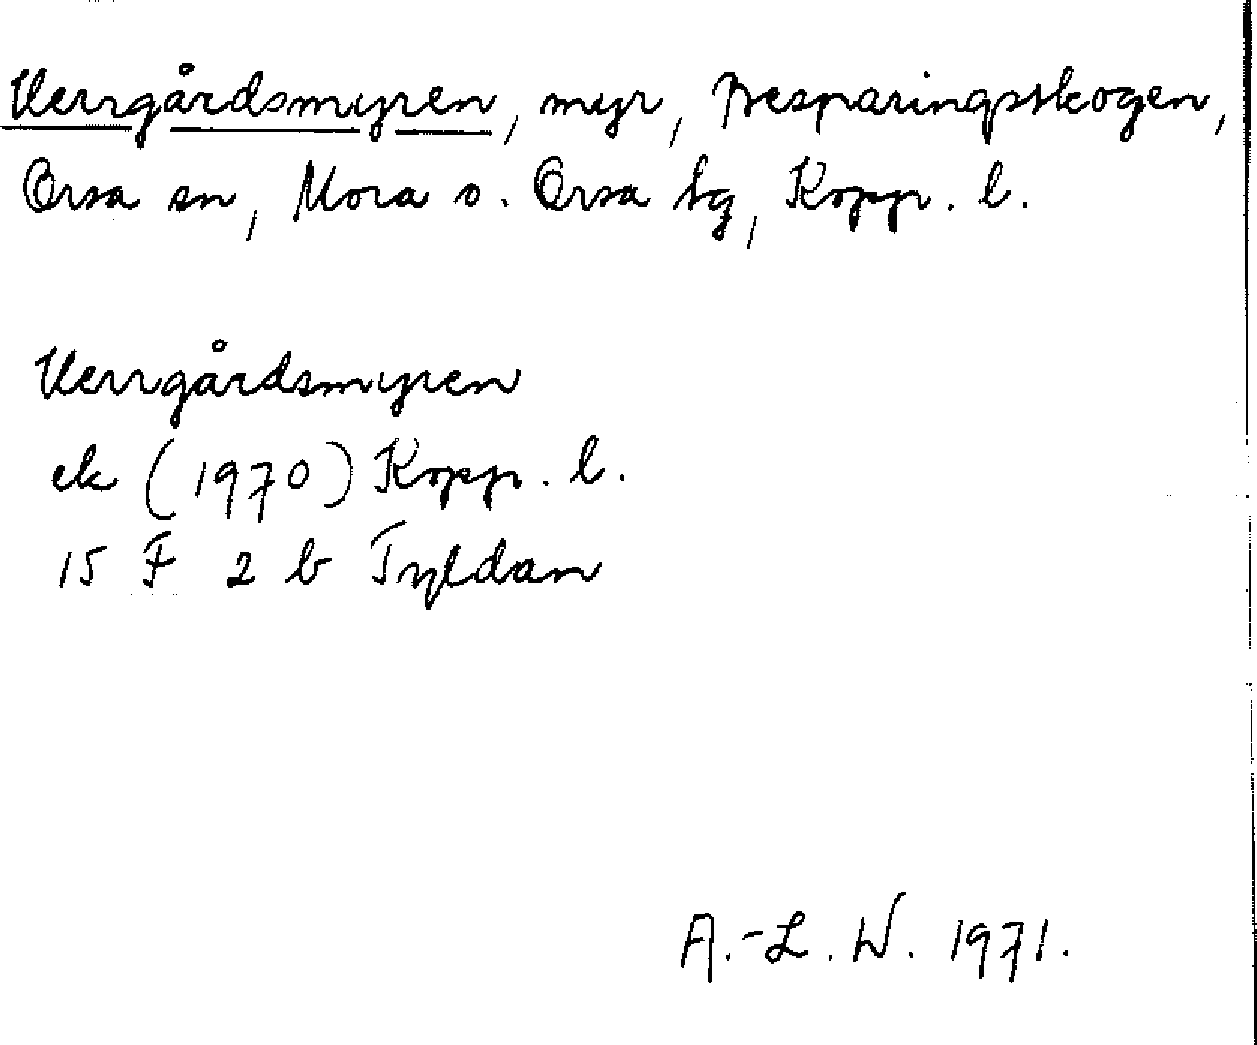 Herrgårdsmyren, myr, Besparingsskogen,
Orsa sn, Mora o. Orsa tg, Kopp. l.
Herrgårdsmyren
ek (1970) Kopp. l.
15 F 2 b Tyldan
A.-L. W. 1971.